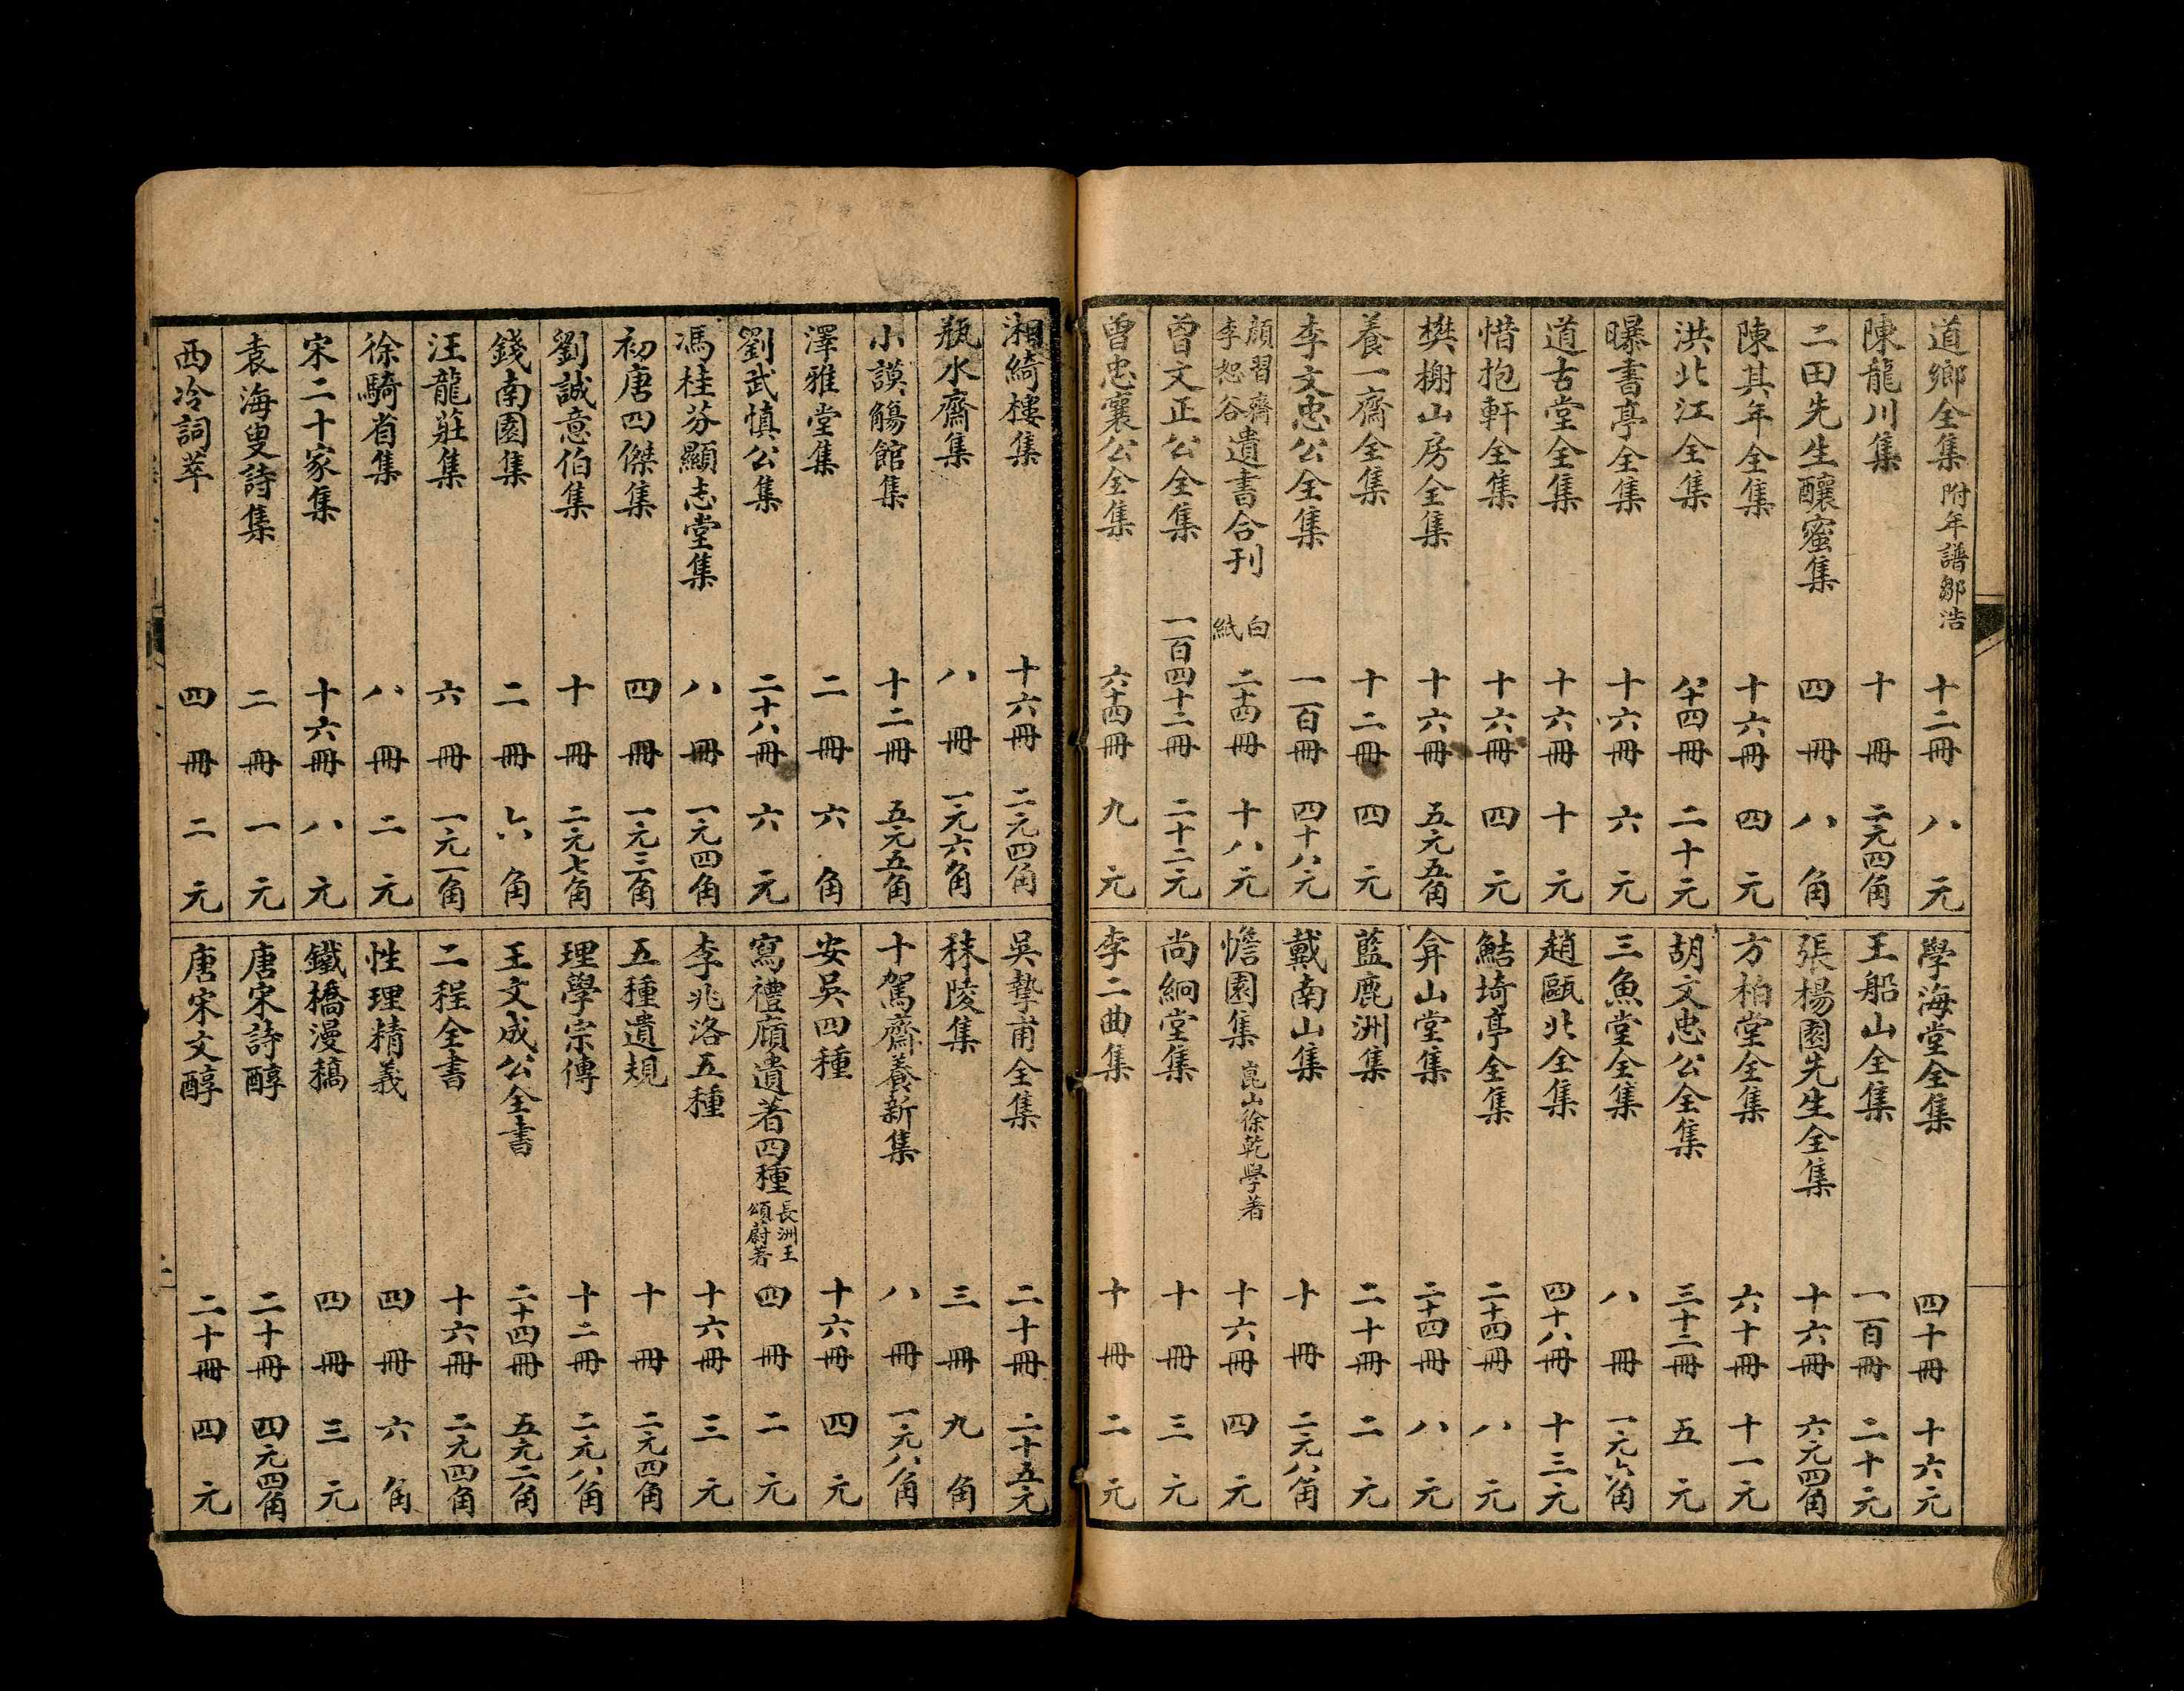 道鄉全集 附年譜鄒浩 十二冊 八元
陳龍川集 十冊 二元四角
二田先生釀蜜集 四冊 八角
陳其年全集 十六冊 四元
洪北江全集 八十四冊 二十元
曝書亭全集 十六冊 六元
道古堂全集 十六冊 十元
惜抱軒全集 十六冊 四元
樊榭山房全集 十六冊 五元五角
養一齋全集 十二冊 四元
李文忠公全集 一百冊 四十八元
顏習齋李恕谷遺書合刊 白紙 二十四冊 十八元
曾文正公全集 一百四十二冊 二十二元
曾忠襄公全集 六十四冊 九元
學海堂全集 四十冊 十六元
王船山全集 一百冊 二十元
張楊園先生全集 十六冊 六元四角
方柏堂全集 六十冊 十一元
胡文忠公全集 三十二冊 五元
三魚堂全集 八冊 一元六角
趙甌北全集 四十八冊 十三元
鮚埼亭全集 二十四冊 八元
弇山堂集 二十四冊 八元
藍鹿洲集 二十冊 二元
戴南山集 十冊 二元八角
憺園集 崑山徐乾學著 十六冊 四元
尚絅堂集 十冊 三元
李二曲集 十冊 二元
湘綺樓集 十六冊 二元四角
瓶水齋集 八冊 一元六角
小謨觴館集 十二冊 五元五角
澤雅堂集 二冊 六角
劉武慎公集 二十八冊 六元
馮桂芬顯志堂集 八冊 一元四角
初唐四傑集 四冊 一元三角
劉誠意伯集 十冊 二元七角
錢南園集 二冊 六角
汪龍莊集 六冊 一元一角
徐騎省集 八冊 二元
宋二十家集 十六冊 八元
袁海叟詩集 二冊 一元
西泠詞萃 四冊 二元
吳摯甫全集 二十冊 二十五元
秣陵集 三冊 九角
十駕齋養新集 八冊 一元八角
安吳四種 十六冊 四元
寫禮廎遺著四種 長洲王頌蔚著 四冊 二元
李兆洛五種 十六冊 三元
五種遺規 十冊 二元四角
理學宗傳 十二冊 二元八角
王文成公全書 二十四冊 五元二角
二程全書 十六冊 二元四角
性理精義 四冊 六角
鐵橋漫稿 四冊 三元
唐宋詩醇 二十冊 四元四角
唐宋文醇 二十冊 四元